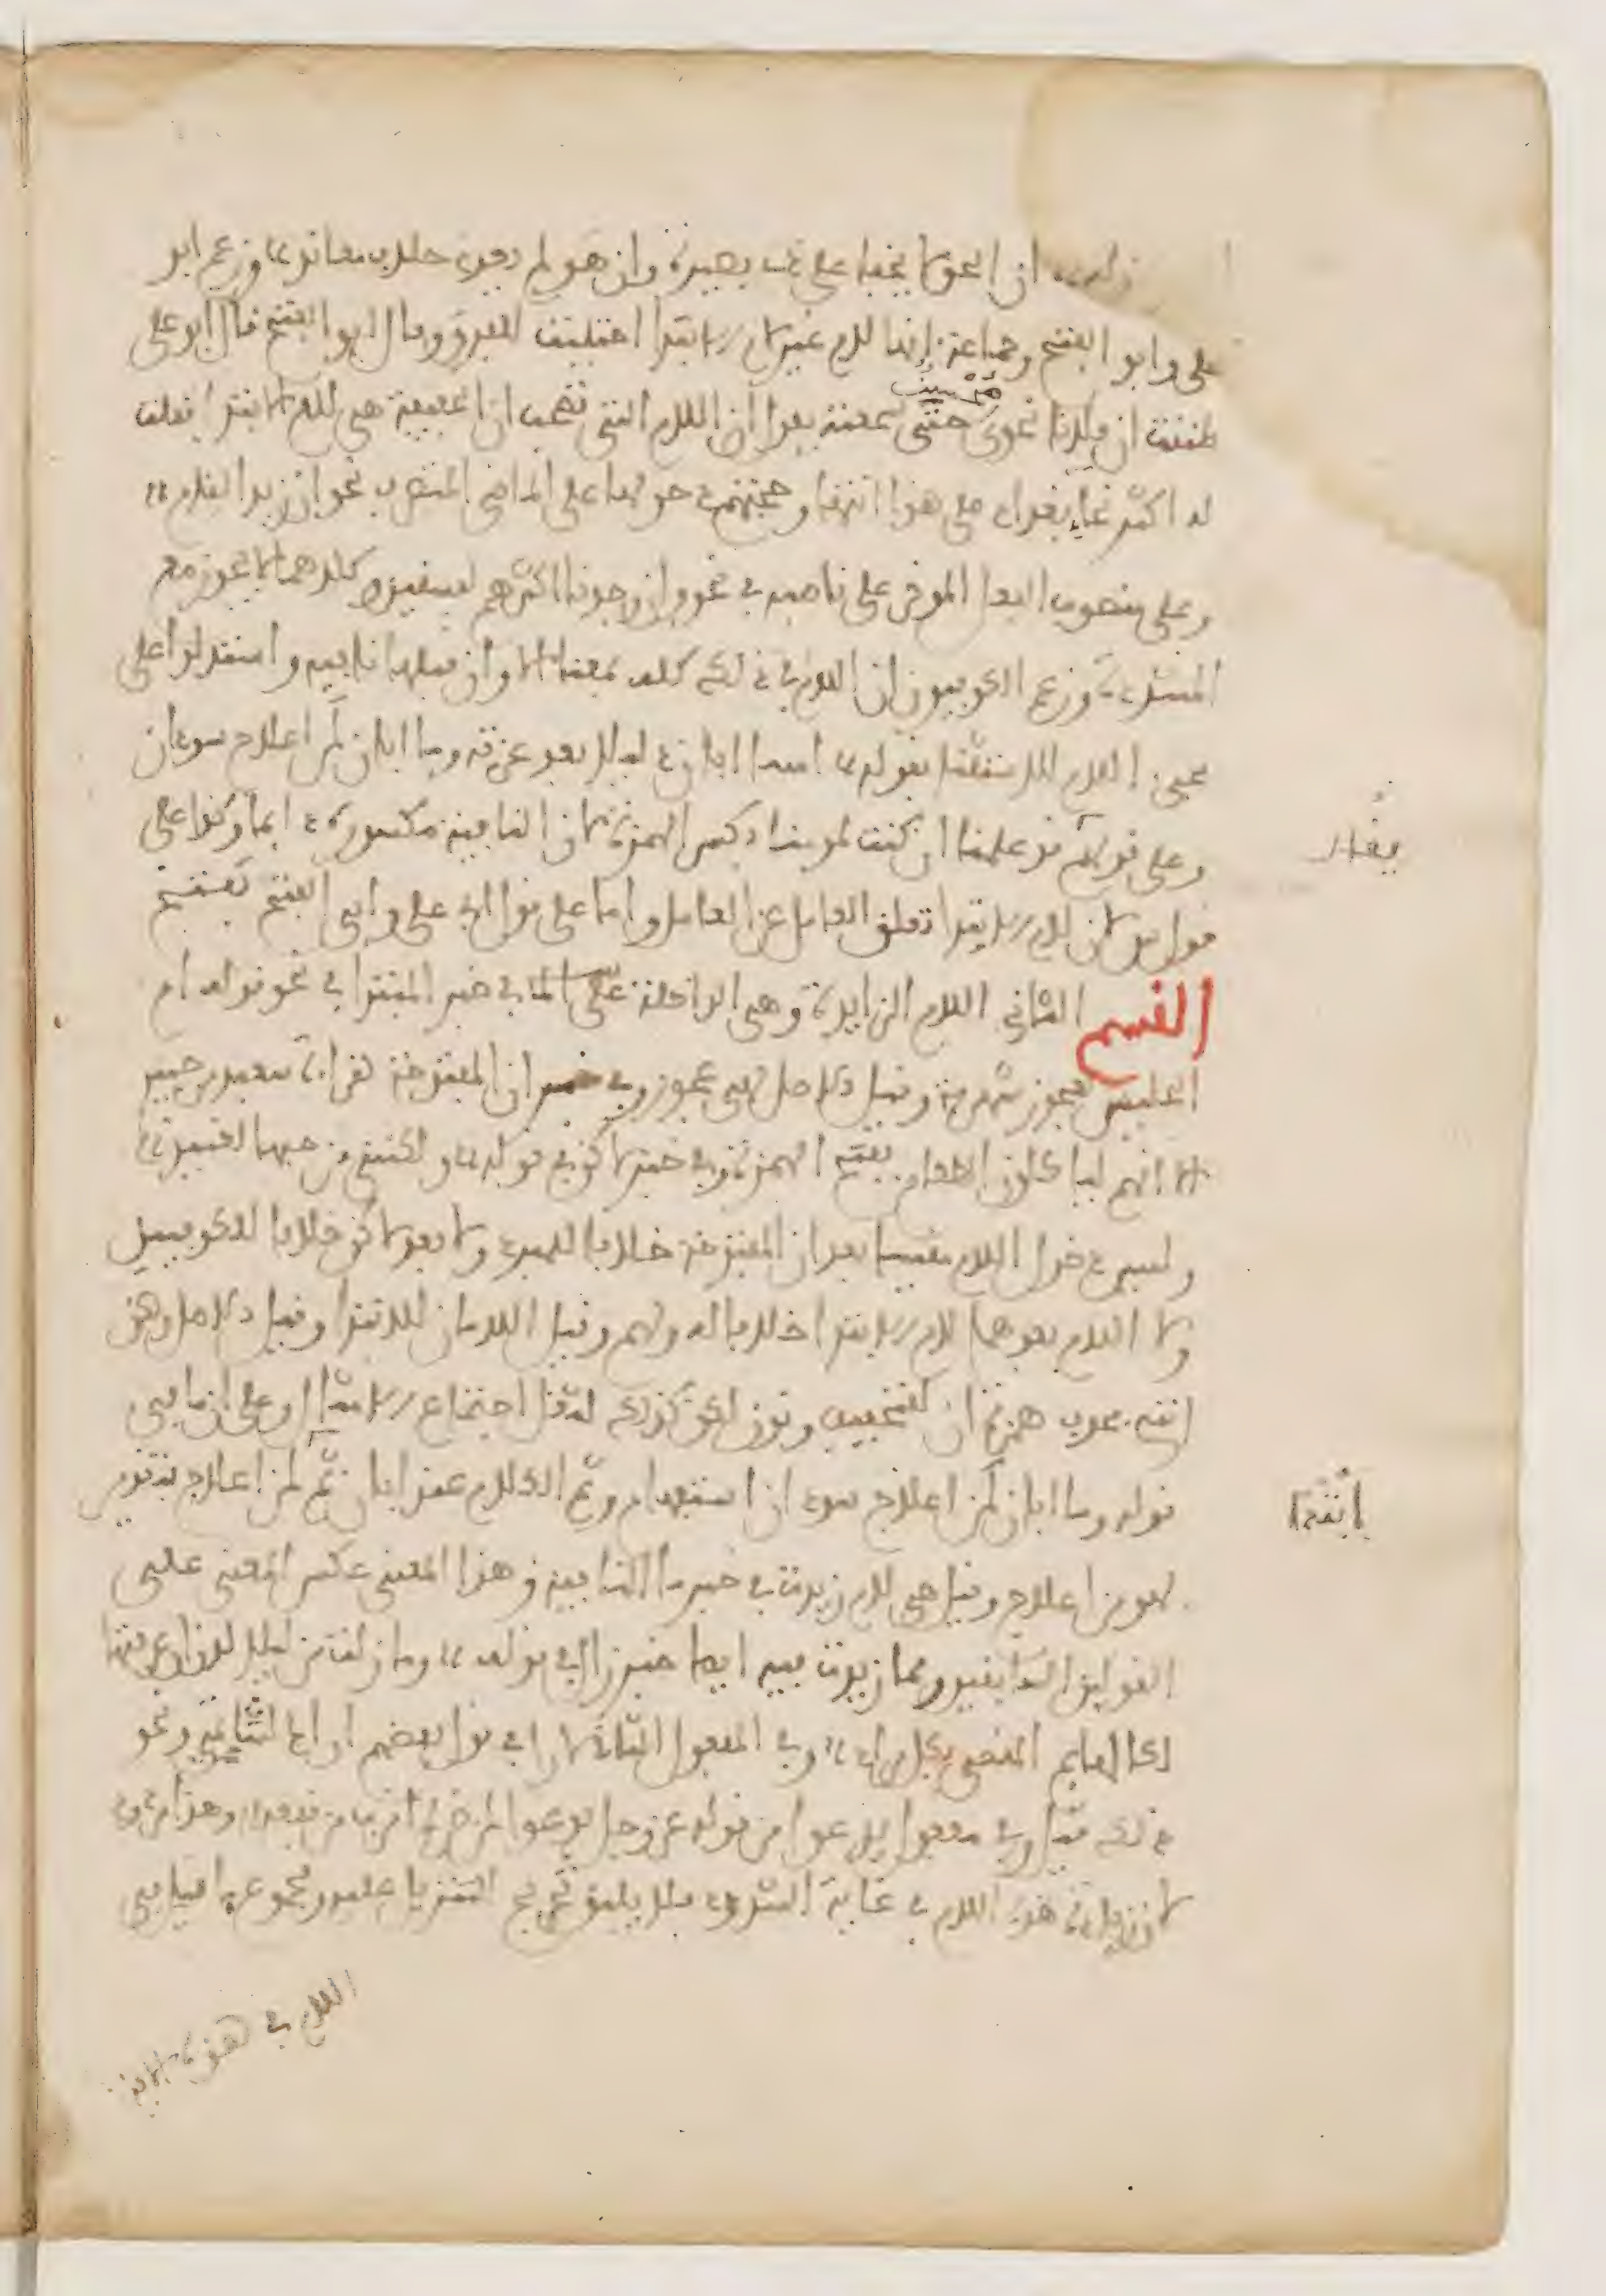 ان الحق لا يخفى على ذي بصيرة وان هو لم يعدم خلاف معاند وزعم ابو
على وابو الفتح وجماعة انها لام غير لام الابتدا اجتلبت للفرق وقال ابو الفتح قال ابو على
ظننت ان فلانا نحوى محسن حتى سمعته يقول ان اللام التى تصحب ان الخفيفة هى لام الابتدا فقلت
له اكثر نحاة بغداد على هذا انتهى وحجتهم دخولها على الماضى المتصرف نحو ان زيد لقام
وعلى منصوب الفعل الموخر عن ناصبه في نحو وان وجدنا اكثرهم لفاسقين وكلاهما لا يجوز مع
المشددة وزعم الكوفيون ان اللام في ذلك كله بمعنى الا وان قبلها نافية واستدلوا على
مجىء اللام للاستثنا بقوله امسى ابان ذليلا بعد عزته وما ابان لمن اعلاج سودان
وعلى قولهم قد علمنا ان كنت لمومنا بكسر الهمزة لان النافية مكسورة دايما وكذا على
قول س لان لام الابتدا تعلق العامل عن العمل واما على قول ابى على وابى الفتح فتفتح
القسم الثانى اللام الزايدة وهى الداخلة في خبر المبتدا في نحو قوله ام
الحليس لعجوز شهربه وقيل الاصل لهى عجوز وفى خبر ان المفتوحة كقراءة سعيد بن جبير
الا انهم لياكلون الطعام بفتح الهمزة وفى خبر لاكن في قوله ولكننى من حبها لعميد
وليس دخول اللام مقيسا بعد ان المفتوحة خلافا للمبرد ولا بعد لاكن خلافا للكوفيين
ولا اللام بعدهما لام الابتدا خلافا له ولهم وقيل اللامان للابتدا وقيل الاصل ولاكن
اننى فحذفت همزة ان للتخفيف ونون لاكن كذلك لثقل اجتماع الامثال وعلى ان ما في
قوله وما ابان لمن اعلاج سودان استفهام وتم الكلام عند ابان ثم لمن اعلاج بتقدير
لهو من اعلاج وقيل هى لام زيدت في خبر ما النافية وهذا المعنى عكس المعنى على
القولين السابقين ومما زيدت فيه ايضا خبر زال في قوله وما زلت من ليلى لدن ان عرفتها
لكالهايم المقصى بكل مراد وفى المفعول الثانى لارى في قول بعضهم اراك لشاتمى ونحو
ذلك قيل وفى مفعول يدعوا من قوله عز وجل يدعوا لمن ضره اقرب من نفعه وهذا مردود
لان زيادة هذه اللام في غاية الشذوذ فلا يليق تخريج التنزيل عليه ومجموع ما قيل في
اللام في هذه الاية
يقال
انتها